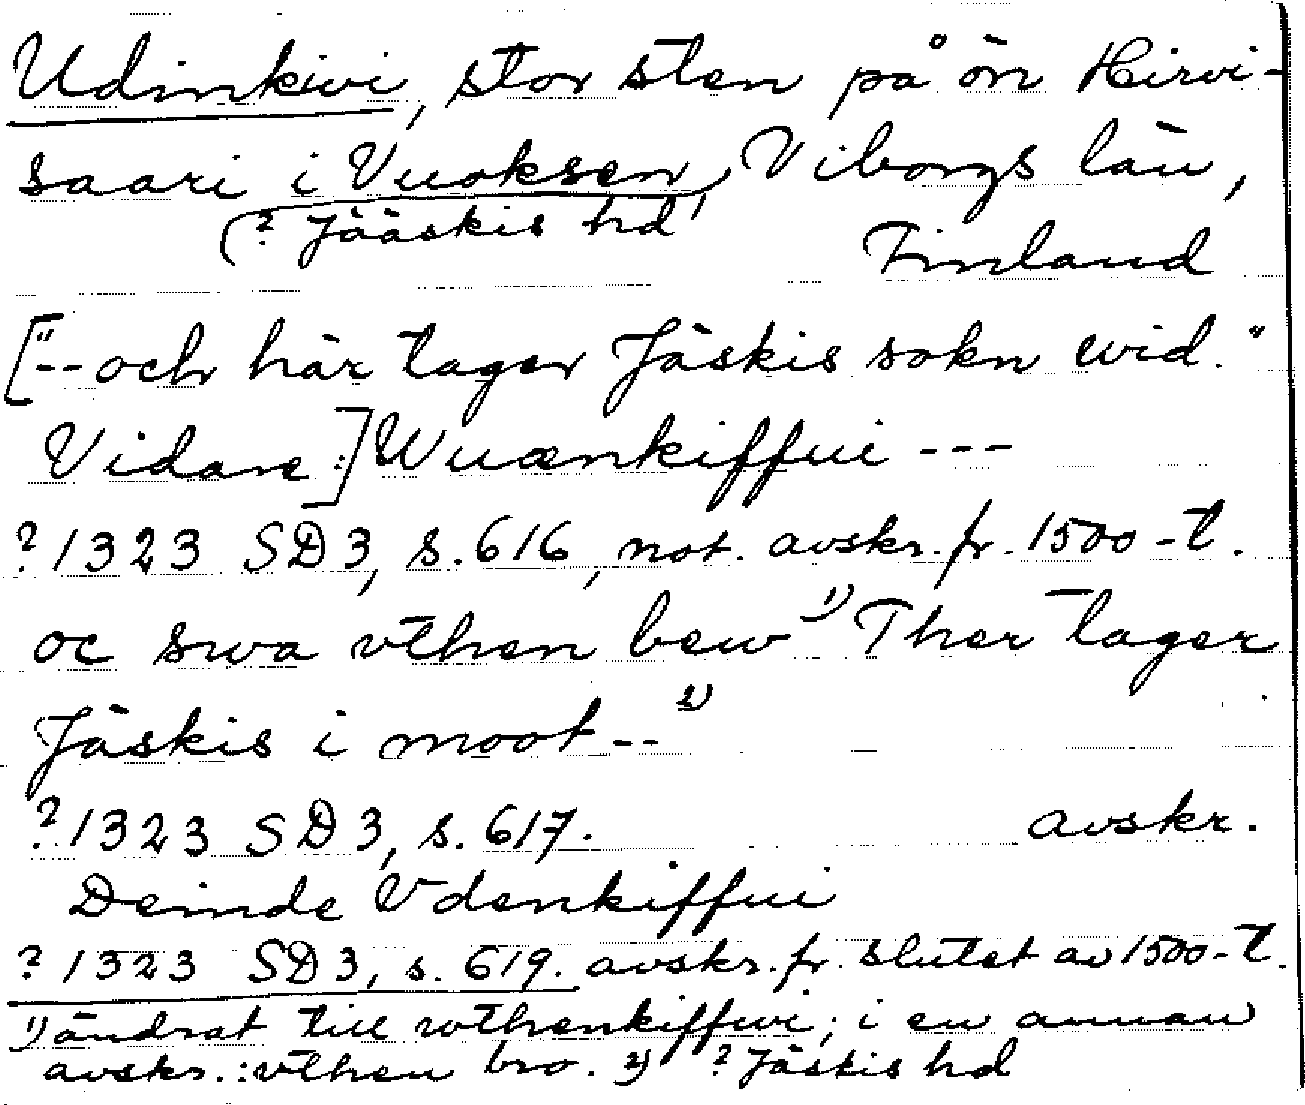 Udinkivi, stor sten på ön Hirvi-
saari i Vuoksen, Viborgs län,
(? Jääskis hd)
Finland
["--och här tager Jäskis sokn wid."
Vidare:] Wuænkiffui ---
? 1323 SD 3, s. 616, not. avskr. fr. 1500-t.
oc swa vthen bew 1) Ther tager
Jäskis i moot -- 2)
? 1323 SD 3, s. 617. avskr.
Deinde Vdenkiffui
? 1323 SD 3, s. 619. avskr. fr. slutet av 1500-t.
1) ändrat till wthenkiffwi; i en annan
avskr.: vthen bro. 2) ? Jäskis hd